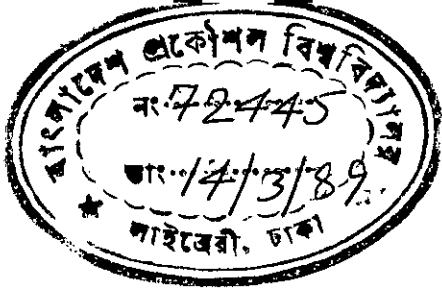 বাংলাদেশ প্রকৌশল বিশ্ববিদ্যালয়
নং 72445
তাং 14/3/89
লাইব্রেরী, ঢাকা